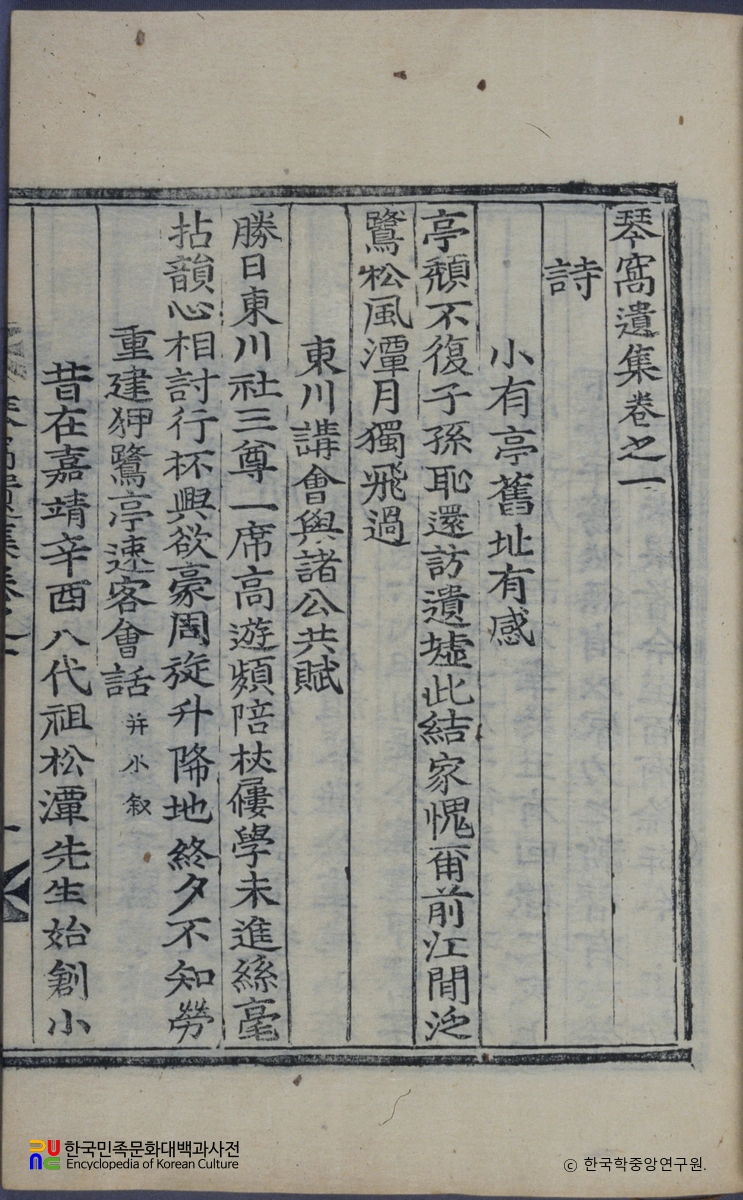 琴窩遺集卷之一
詩
小有亭舊址有感
亭頹不復子孫恥還訪遺墟此結家愧爾前江閒泛
鷺松風潭月獨飛過
東川講會與諸公共賦
勝日東川社三尊一席高遊頻陪杖屨學未進絲毫
拈韻心相討行杯興欲豪周旋升降地終夕不知勞
重建狎鷺亭速客會話 并小叙
昔在嘉靖辛酉八代祖松潭先生始創小
한국민족문화대백과사전
Encyclopedia of Korean Culture
© 한국학중앙연구원.